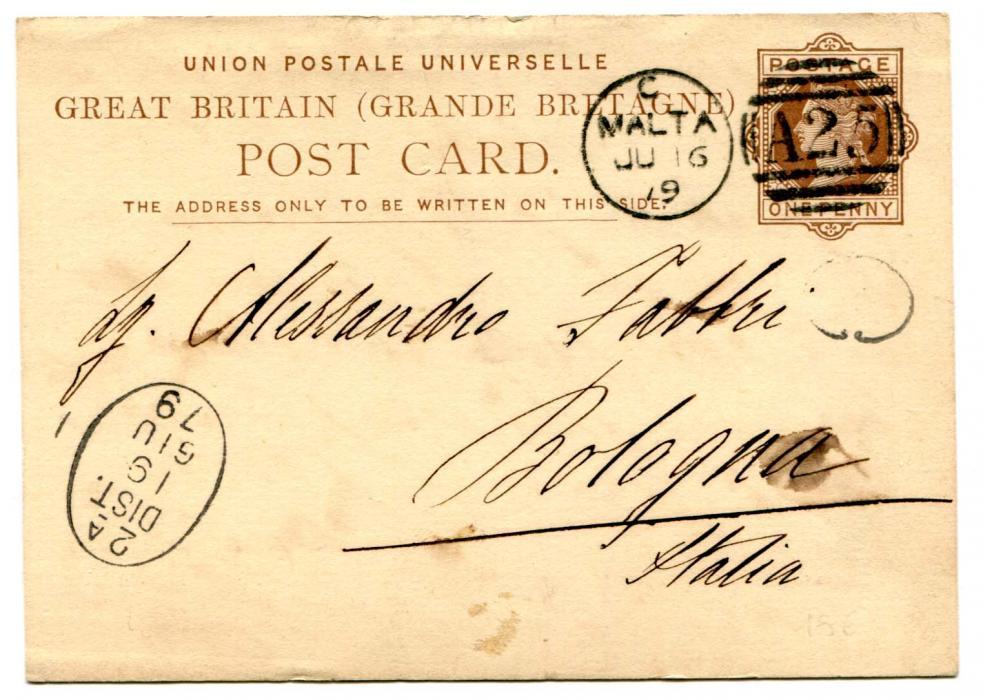 UNION POSTALE UNIVERSELLE
GREAT BRITAIN (GRANDE BRETAGNE)
POST CARD.
THE ADDRESS ONLY TO BE WRITTEN ON THIS SIDE.
C
MALTA
JU 16
79
POSTAGE
A25
ONE PENNY
Sg. Alessandro Fabbri
Bologna
Italia
2A
DIST.
19
GIU
79
15€